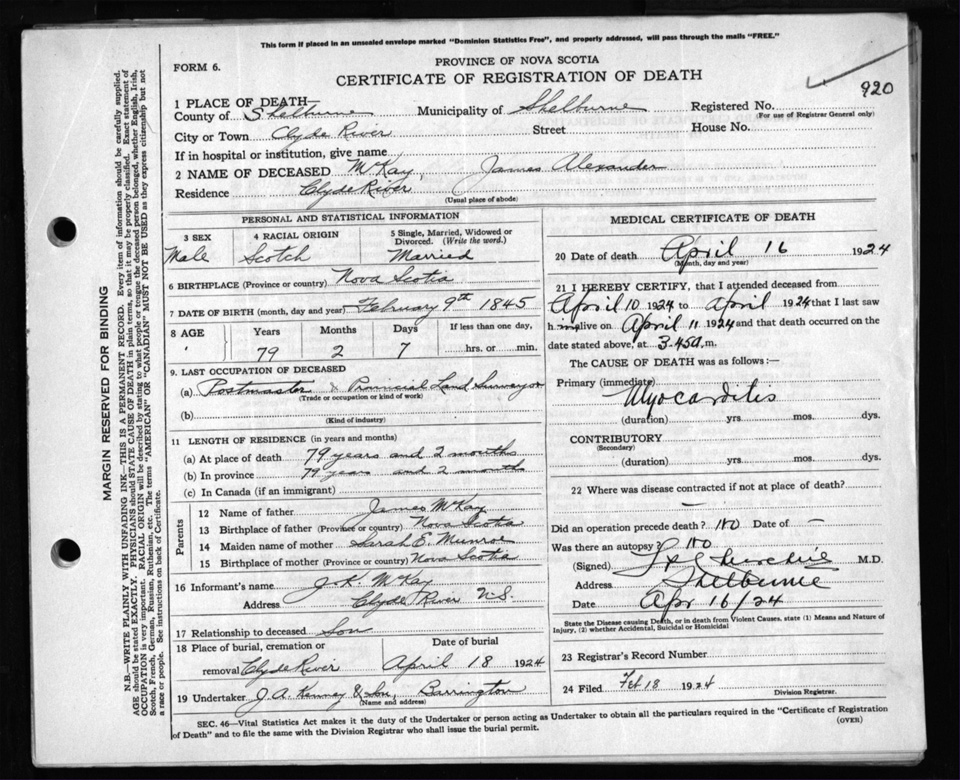 This form if placed in an unsealed envelope marked "Dominion Statistics Free", and properly addressed, will pass through the mails "FREE."
FORM 6.
PROVINCE OF NOVA SCOTIA
CERTIFICATE OF REGISTRATION OF DEATH
920
1 PLACE OF DEATH
County of Shelburne Municipality of Shelburne Registered No.
(For use of Registrar General only)
City or Town Clyde River Street House No.
If in hospital or institution, give name
2 NAME OF DECEASED McKay, James Alexander
Residence Clyde River
(Usual place of abode)
PERSONAL AND STATISTICAL INFORMATION
3 SEX 4 RACIAL ORIGIN 5 Single, Married, Widowed or Divorced. (Write the word.)
Male Scotch Married
6 BIRTHPLACE (Province or country) Nova Scotia
7 DATE OF BIRTH (month, day and year) February 9th 1845
8 AGE Years Months Days If less than one day,
79 2 7 hrs. or min.
9. LAST OCCUPATION OF DECEASED
(a) Postmaster & Provincial Land Surveyor
(Trade or occupation or kind of work)
(b)
(Kind of industry)
11 LENGTH OF RESIDENCE (in years and months)
(a) At place of death 79 years and 2 months
(b) In province 79 years and 2 months
(c) In Canada (if an immigrant)
Parents
12 Name of father James McKay
13 Birthplace of father (Province or country) Nova Scotia
14 Maiden name of mother Sarah E. Munroe
15 Birthplace of mother (Province or country) Nova Scotia
16 Informant's name J. K. McKay
Address Clyde River N.S.
17 Relationship to deceased Son
18 Place of burial, cremation or Date of burial
removal Clyde River April 18 1924
19 Undertaker J. A. & Son, Barrington
(Name and address)
MEDICAL CERTIFICATE OF DEATH
20 Date of death April 16 1924
(Month, day and year)
21 I HEREBY CERTIFY, that I attended deceased from
April 10 1924 to April 1924 that I last saw
him alive on April 11 1924 and that death occurred on the
date stated above, at 3.45 a.m.
The CAUSE OF DEATH was as follows:—
Primary (immediate)
Myocarditis
(duration) yrs. mos. dys.
CONTRIBUTORY
(Secondary)
(duration) yrs. mos. dys.
22 Where was disease contracted if not at place of death?
—
Did an operation precede death? no Date of —
Was there an autopsy? no
(Signed) M.D.
Address Shelburne
Date Apr 16/24
State the Disease causing Death, or in death from Violent Causes, state (1) Means and Nature of
Injury, (2) whether Accidental, Suicidal or Homicidal
23 Registrar's Record Number
24 Filed 18 1924
Division Registrar.
SEC. 46—Vital Statistics Act makes it the duty of the Undertaker or person acting as Undertaker to obtain all the particulars required in the "Certificate of Registration
of Death" and to file the same with the Division Registrar who shall issue the burial permit.
(OVER)
MARGIN RESERVED FOR BINDING
N.B.—WRITE PLAINLY WITH UNFADING INK—THIS IS A PERMANENT RECORD. Every item of information should be carefully supplied.
AGE should be stated EXACTLY. PHYSICIANS should STATE CAUSE OF DEATH in plain terms, so that it may be properly classified. Exact statement of
OCCUPATION is very important. RACIAL ORIGIN will be described by stating to what people or tongue the deceased person belonged, whether English, Irish,
Scotch, French, German, Russian, Ruthenian, etc. The terms "AMERICAN" OR "CANADIAN" MUST NOT BE USED as they express citizenship but not
a race or people. See instructions on back of Certificate.